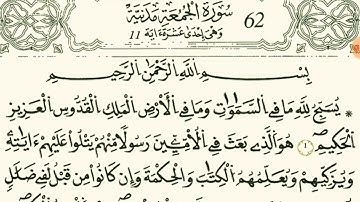 62
سُورَةُ الْجُمُعَةِ مَدَنِيَّة
وَهِىَ إِحْدَىٰ عَشْرَةَ اٰيَة 11
بِسْمِ اللَّهِ الرَّحْمَٰنِ الرَّحِيمِ
يُسَبِّحُ لِلهِ مَا فِي السَّمَٰوَٰتِ وَمَا فِي الْأَرْضِ الْمَلِكِ الْقُدُّوسِ الْعَزِيزِ
الْحَكِيمِ ۝١ هُوَ الَّذِي بَعَثَ فِي الْأُمِّيِّينَ رَسُولًا مِّنْهُمْ يَتْلُوا عَلَيْهِمْ ءَايَٰتِهِ
وَيُزَكِّيهِمْ وَيُعَلِّمُهُمُ الْكِتَٰبَ وَالْحِكْمَةَ وَإِن كَانُوا مِن قَبْلُ لَفِي ضَلَٰلٍ